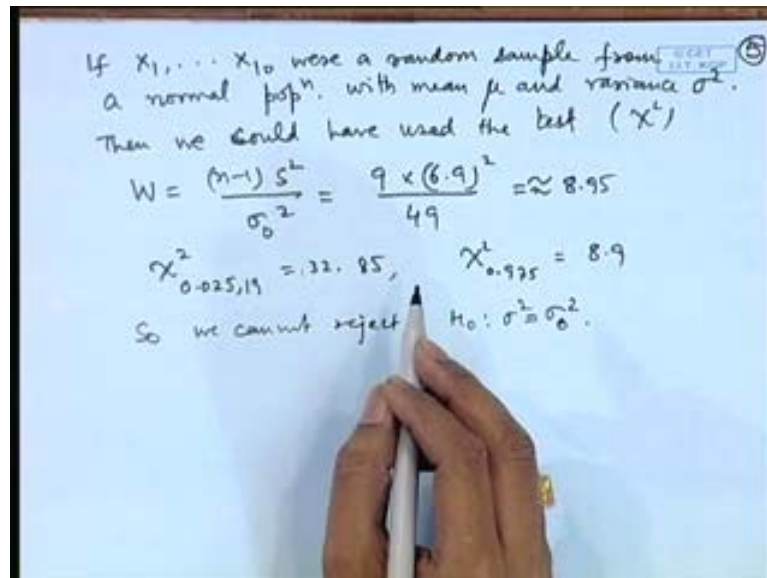 If X₁, . . . X₁₀ were a random sample from
a normal popⁿ. with mean μ and variance σ².
Then we could have used the test (χ²)
W = (n-1) S² / σ₀² = 9 × (6.9)² / 49 = ≈ 8.95
χ²₀.₀₂₅,₁₉ = 32.85, χ²₀.₉₇₅ = 8.9
So we cannot reject H₀: σ² = σ₀².
5